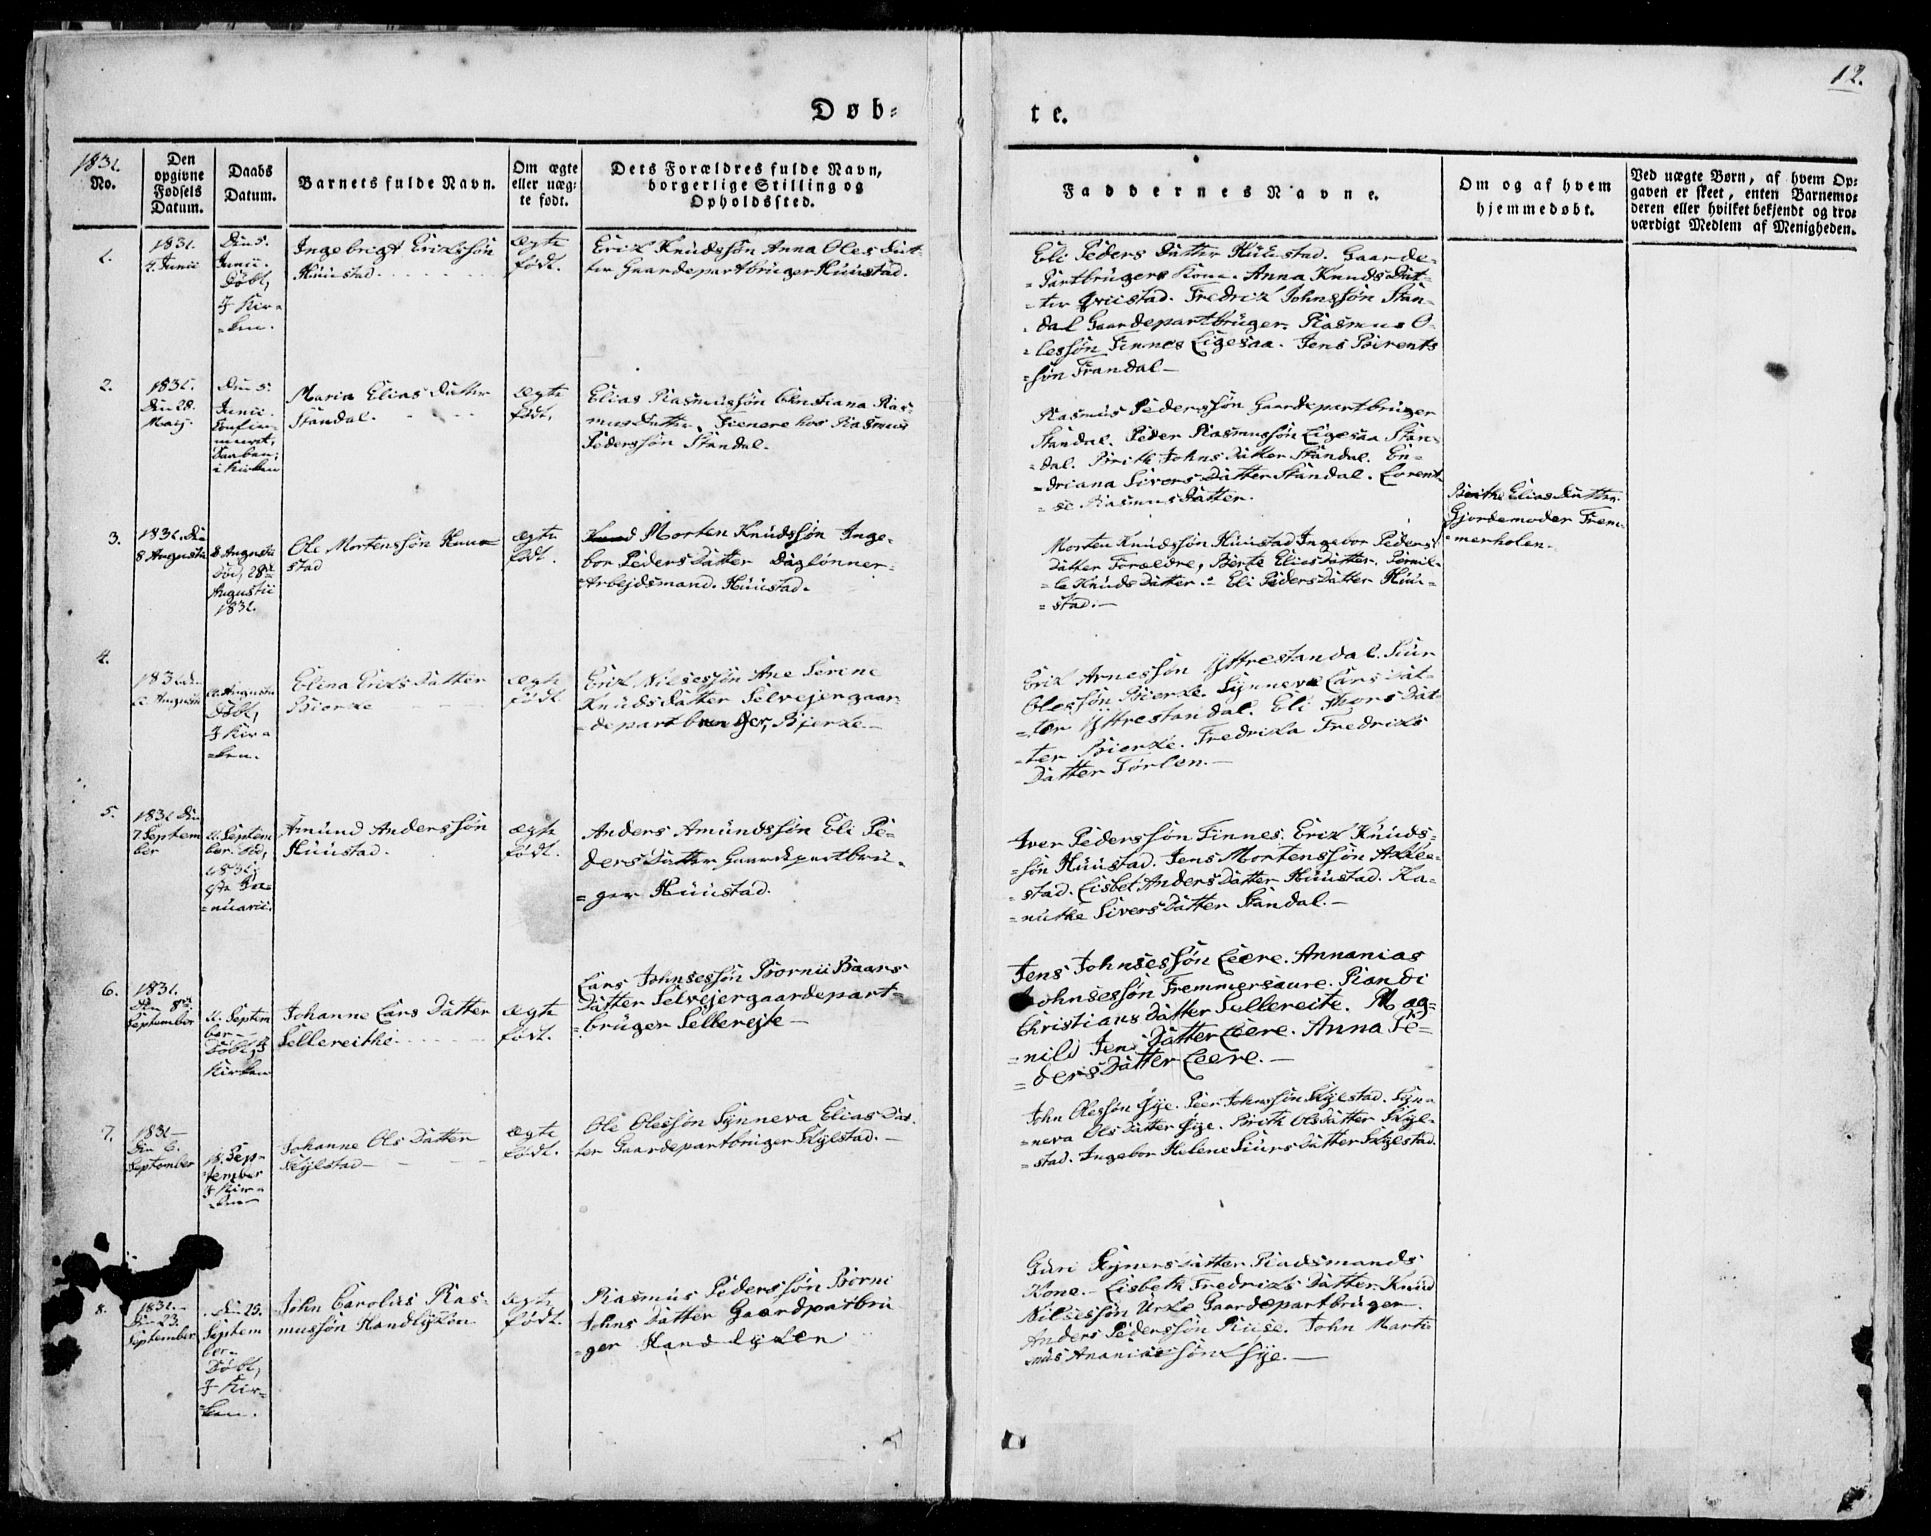 12.
Døb=
te.
1831.
No.
Den
opgivne
Fødsels
Datum.
Daabs
Datum.
Barnets fulde Navn.
Om ægte
eller uæg=
te født.
Dets Forældres fulde Navn,
borgerlige Stilling og
Opholdssted.
Faddernes Navne.
Om og af hvem
hjemmedøbt.
Ved uægte Børn, af hvem Op=
gaven er skeet, enten Barnemo=
deren eller hvilket bekjendt og tro=
værdigt Medlem af Menigheden.
1.
1831.
Junii
Den 5.
Junii.
Døbt,
I Kir=
=ken.
Ingebrigt Erikssøn
Huustad.
ægte
født.
Erik Knudssøn Anna Oles Dat
ter Gaardepartbruger Huustad.
Eli Peders Datter Huustad. Gaarde=
=Partbrugers Kone. Anna Knuds Dat=
=ter Qviistad. Fredrik Johnssøn Stan=
dal Gaardepartbruger. Rasmus O=
=lessøn Finnes Ligesaa. Jens Berents
søn Trandal —
2.
1831.
Den 28.
Maij.
Den 5.
Junii.
Confir=
meret,
Daaben,
i Kirken
Maria Elias Datter
Standal.
ægte
født.
Elias Rasmussøn Christiana Ras=
mus Datter, Tienere hos Rasmus
Pederssøn Standal.
Rasmus Pederssøn Gaardepartbruger
Standal. Peder Rasmussøn Ligesaa Stan=
=dal. Birite Johns Datter Standal. En=
=driana Sivers Datter Standal. Lorent
=se Rasmus Datter.
Berthe Elias Datter.
Gjordemoder Frem=
=merholen.
3.
1831. Den
8 Augustii
8 Augustii
Død, 28de
Augustii
1831.
Ole Mortenssøn Huu=
stad
ægte
født.
Morten Knudssøn Inge=
bor Peders Datter Daglønner=
=Arbejdsmand. Huustad.
Morten Knudssøn Huustad Ingebor Peders
Datter Forældre, Berte Elias Datter. Pernil=
=le Knuds Datter. Eli Peders Datter Huu=
=stad. —
4.
Augustii
Augustii
Døbt,
I Kir=
=ken.
Elina Eriks Datter
Bierke
ægte
født
Erik Nilsessøn Ane Serine
Knuds Datter Selvejergaar=
=departbruger, Bjerke —
Erik Arnessøn Yttrestandal. Siur
Olessøn Bierke. Synneve Lars Dat=
=ter Yttrestandal. Eli Thors Dat=
=ter Bierke. Fredrika Fredriks
Datter Sørlen. —
5.
1831 Den
7. Septem
ber
11. Septem
ber. Død,
1831,
Ja=
=nuarii.
Amund Anderssøn
Huustad.
ægte
født.
Anders Amundssøn Eli Pe=
ders Datter Gaardepartbru=
=ger Huustad.
Iver Pederssøn Finnes. Erik Knuds=
=søn Huustad. Jens Mortenssøn Aklee=
=stad. Lisbet Anders Datter Huustad. Ka=
=nutke Sivers Datter Standal. —
6.
1831.
Den 8de
September
11. Septem
ber
Døbt, I
Kirken
Johanne Lars Datter
Sellereithe
ægte
født.
Lars Johnsessøn Bornii Baars
Datter Selvejergaardepart=
=bruger Sellerejte —
Jens Johnsessøn Leere. Annanias
Johnsessøn Fremmersaure. Randi
Christians Datter Sellereite. Mag=
=nild Jens Datter Leere. Anna Pe=
=ders Datter Leere. —
7.
1831
Den 6.
September
18. Sep=
=tember
I Kir=
ken
Johanne Ols Datter
Skylstad —
ægte
født.
Ole Olessøn Synneva Elias Dat
ter Gaardepartbruger Skylstad. —
John Olessøn Øye. Peer Johnssøn Skylestad. Syn=
=neva Ols Datter Øye. Brith Ols Datter Skyl=
=stad. Ingebor Helene Siurs Datter Skylestad.
8.
1831.
Den 23.
September
Den 25.
Septem
ber
Døbt,
I Kir=
=ken.
John Carolus Ras=
mussøn Handlyken
ægte
født.
Rasmus Pederssøn Borni
Johns Datter Gaardpartbru
=ger Handlyken
Guri Reiners Datter Raadsmands
Kone. — Lisbeth Fredriks Datter. Knud
Nilsessøn Urke Gaardepartbruger.
Anders Pederssøn Riise. John Marti=
nus Ananiassøn Øje. —